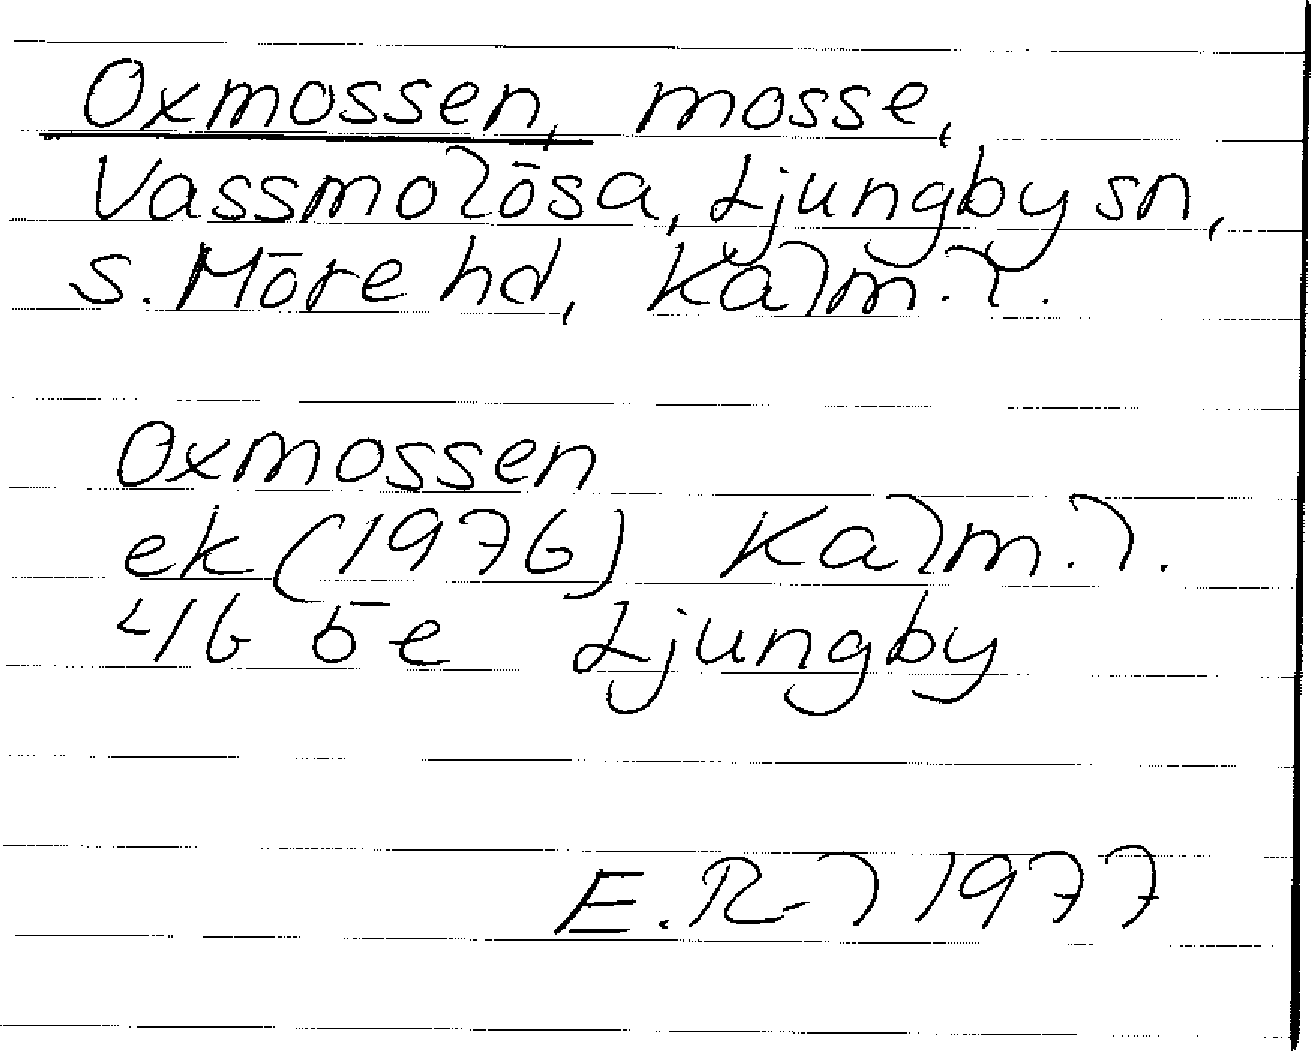 Oxmossen, mosse,
Vassmolösa, Ljungby sn,
s. Möre hd, Kalm. l.
Oxmossen
ek (1976) Kalm. l.
4G 5e Ljungby
E. R-l 1977